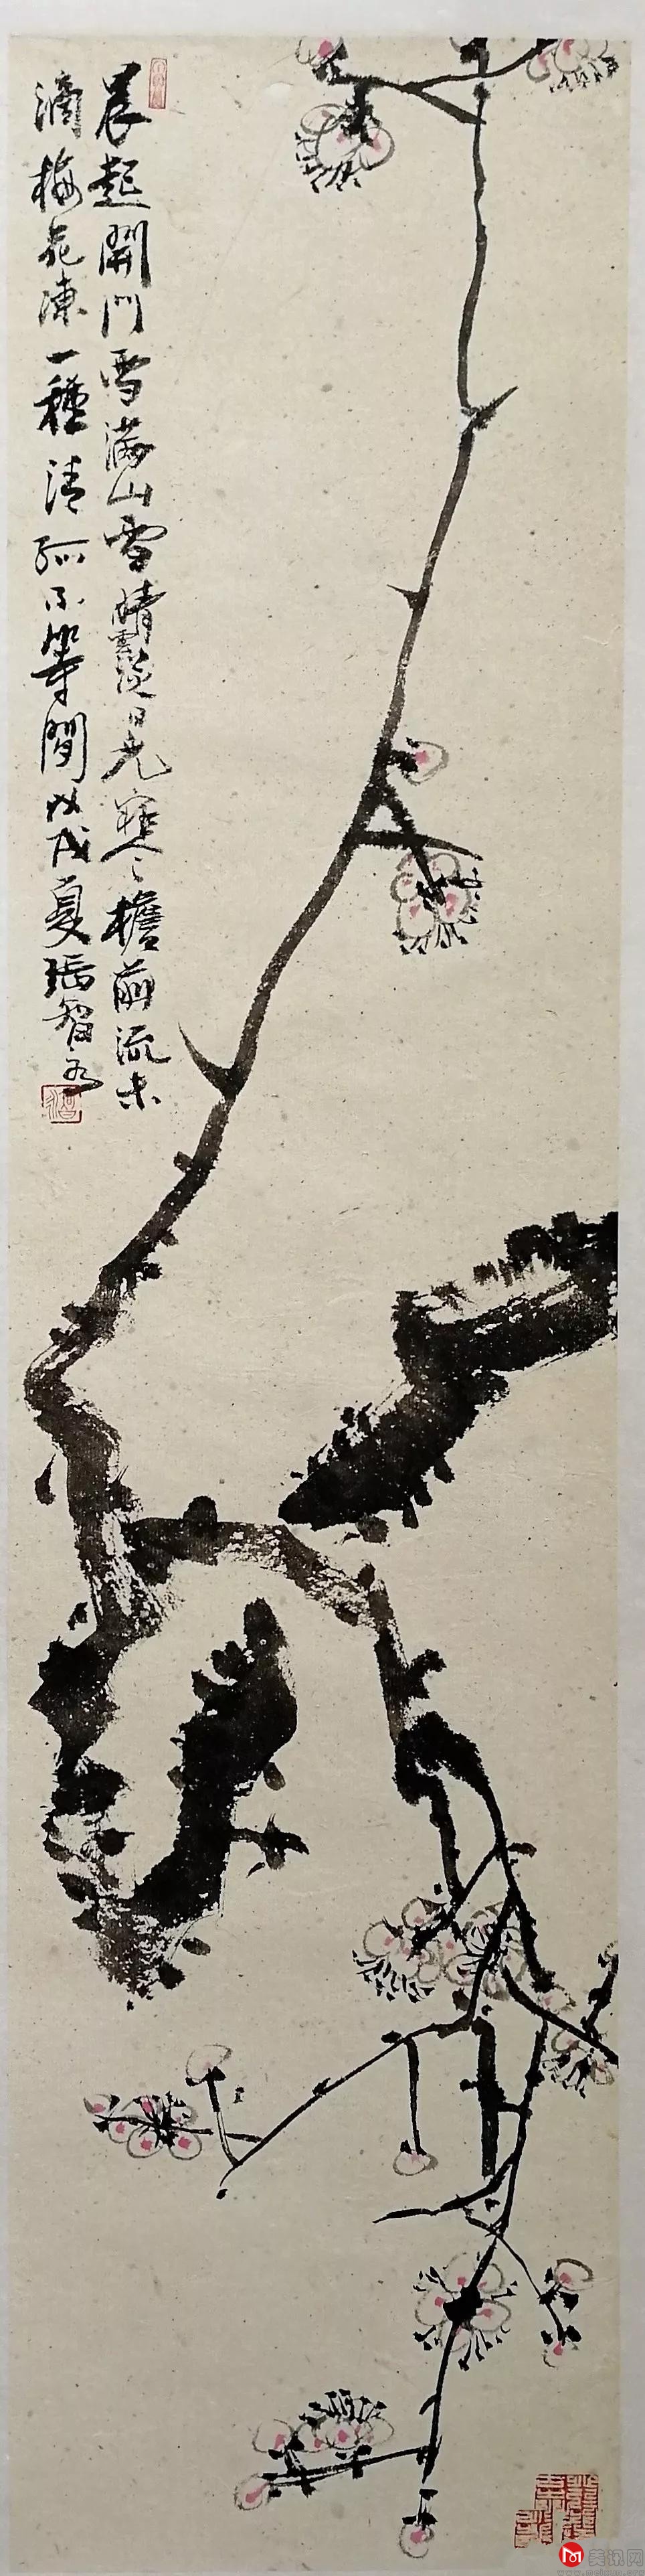 晨起開門雪滿山雪晴雲淡日光寒檐前流未
滴梅花凍一種清孤不等間戊戌夏張智